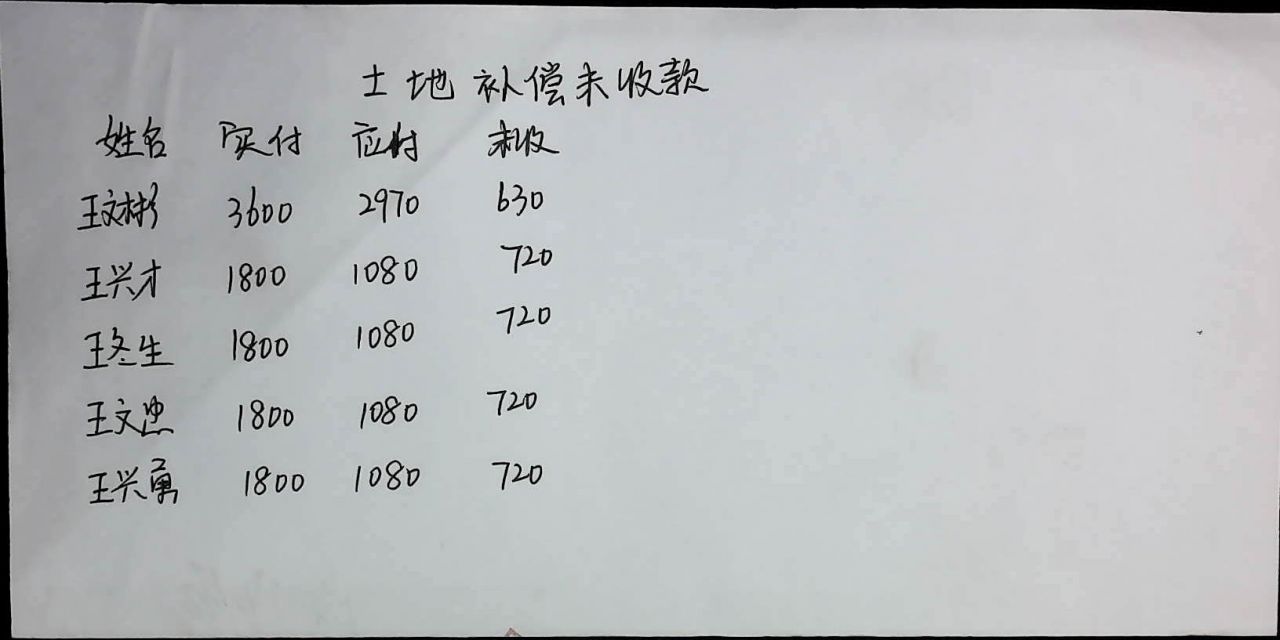 土地补偿未收款
姓名 实付 应付 未收
王文彬 3600 2970 630
王兴才 1800 1080 720
王冬生 1800 1080 720
王文忠 1800 1080 720
王兴勇 1800 1080 720